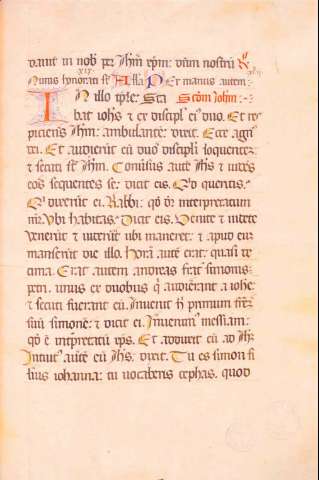 dauit in nob per ihm xpm dnm nostru R
Nimis honorati st Alla P Per manus autem
In illo tpre: Sta Scdm Iohm
bat iohs & ex discipl ei duo. Et res
piciens ihm: ambulante: dixit. Ecce agn
dei. Et audierut eu duo discipli loquente:
& secuti st ihm. Conusus aute ihs & uides
eos sequentes se: dicit eis. Qd queritis.
Q dixerut ei. Rabbi: qd dr interpretatum
mr. Vbi habitas. Dicit eis. Venite & uidete
Venerut & uiderut ubi maneret: & apud eum
manserut die illo. hora aute erat: quasi de
cima. Erat autem andreas frat simonis
petri. unus ex duobus q audierant a iohe:
& secuti fuerant eu. Inuenit h primum frem
suu simone: & dicit ei. Inuenim messiam:
qd e interpretatu xps. Et adduxit eu ad ihm
Intuit aute eu ihs: dixit. Tu es simon fi
lius iohanna: tu uocaberis cephas. quod